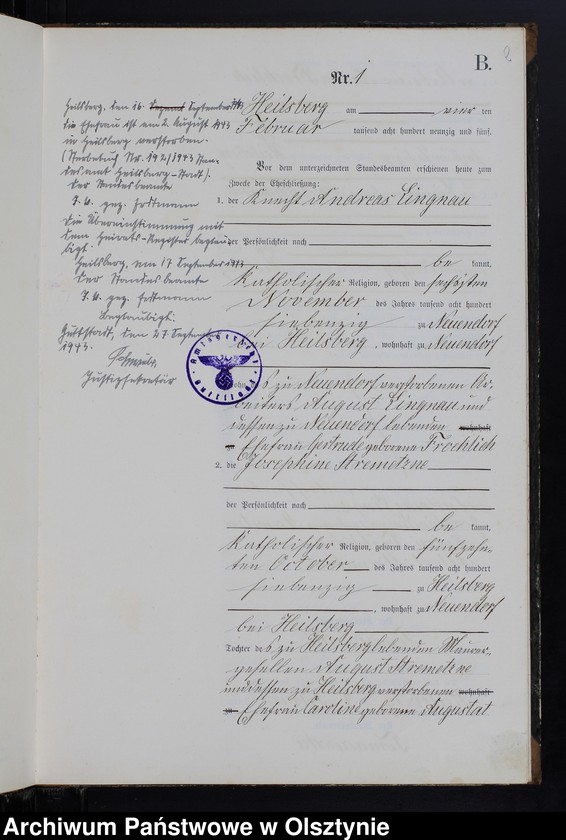 B.
2
Nr. 1
Heilsberg am vier ten
Februar tausend acht hundert neunzig und fünf.
Vor dem unterzeichneten Standesbeamten erschienen heute zum
Zwecke der Eheschließung:
1. der Knecht Andreas Lingnau
der Persönlichkeit nach
be kannt,
Katholischer Religion, geboren den sechsten
November des Jahres tausend acht hundert
siebenzig zu Neuendorf
bei Heilsberg, wohnhaft zu Neuendorf
Sohn des zu Neuendorf verstorbenen Ar-
beiters August Lingnau und
dessen zu Neuendorf lebenden wohnhaft
zu Ehefrau Gertrude geborene Froehlich
2. die Josephine Stremetzne
der Persönlichkeit nach
be kannt,
Katholischer Religion, geboren den fünfzehn-
ten October des Jahres tausend acht hundert
siebenzig zu Heilsberg
, wohnhaft zu Neuendorf
bei Heilsberg
Tochter des zu Heilsberg lebenden Maurer-
gesellen August Stremetzne
und dessen zu Heilsberg verstorbenen wohnhaft
zu Ehefrau Caroline geborene Augustat
Heilsberg, den 16. August September 1943
Die Ehefrau ist am 2. August 1943
in Heilsberg verstorben.
(Sterbebuch Nr. 192/1943 Stan-
desamt Heilsberg-Stadt).
Der Standesbeamte
J. V. gez. Erdtmann
Die Übereinstimmung mit
dem Heirats-Register beglau-
bigt.
Heilsberg, am 17 September 1943
Der Standesbeamte
J. V. gez. Erdtmann
Beglaubigt:
Guttstadt, den 27 September
1943.
Justizsekretär
Amtsgericht
Archiwum Państwowe w Olsztynie